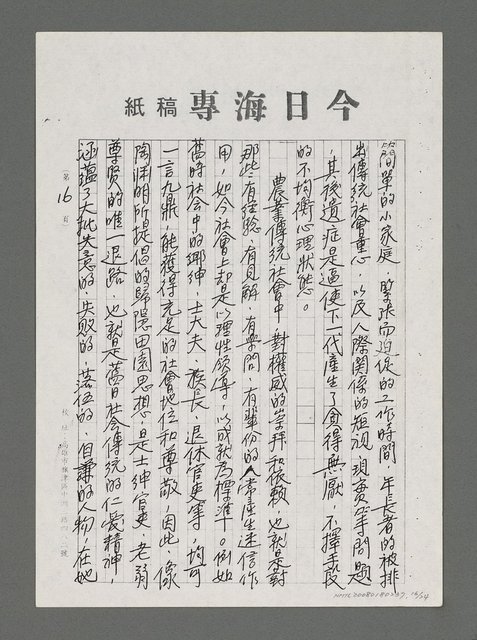 今日海專稿紙
簡單的小家庭,緊張而迫促的工作時間,年長者的被排
出傳統社會重心,以及人際關係的短視,現實等問題
,其後遺症是逼使下一代產生了貪得無厭,不擇手段
的不均衡心理狀態。
農業傳統社會中,對權威的崇拜和依賴,也就是對
那些有經驗,有見解,有學問,有輩份的人常產生迷信作
用,如今社會上却是以理性領導,以成就為標準。例如
舊時社會中的鄉紳,士大夫,族長,退休官吏等,均可
一言九鼎,能獲得充足的社會地位和尊敬,因此,像
陶渊明所提倡的歸隱田園思想,是士紳官吏,老弱
尊賢的唯一退路,也就是舊日社會傳統的仁愛精神,
涵蘊了大批失意的,失敗的,落伍的,自謙的人物,在她
第16頁
校址:高雄市旗津區中洲三路四八二號
NMTL20080180237, 16/24